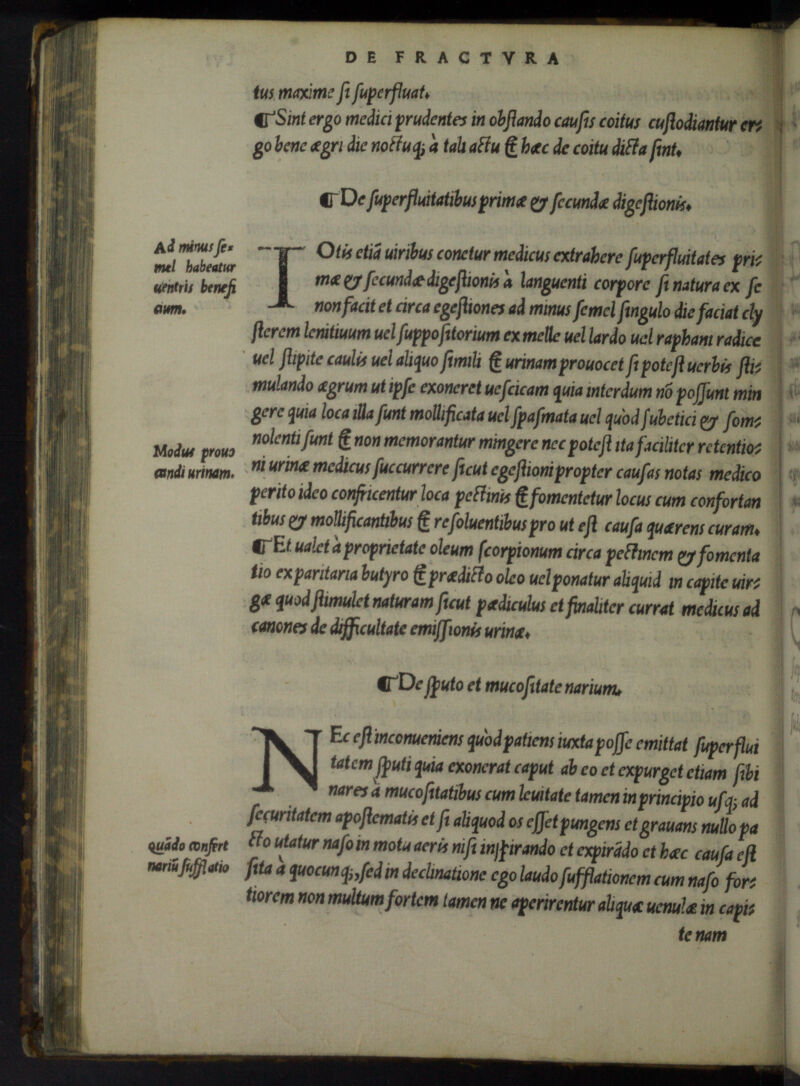 DE FRACTVRA
tus maxime si superfluat.
¶Sint ergo medici prudentes in obstando causis coitus custodiantur er⸗
go bene ægri die noctuq; a tali actu & hæc de coitu dicta sint.
¶De superfluitatibus primæ & secundæ digestionis.
Ad minus se⸗
mel habeatur
uentris benefi
cium.
TOtis etiā uiribus conetur medicus extrahere superfluitates pri⸗
mæ & secundæ digestionis à languenti corpore si natura ex se
non facit et circa egestiones ad minus semel singulo die faciat cly
sterem lenitiuum uel suppositorium ex melle uel lardo uel raphani radice
uel stipite caulis uel aliquo simili & urinam prouocet si potest uerbis sti⸗
mulando ægrum ut ipse exoneret uescicam quia interdum nō possunt min
gere quia loca illa sunt mollificata uel spasmata uel quòd subetici & som⸗
nolenti sunt & non memorantur mingere nec potest ita faciliter retentio⸗
Modus prouo
candi urinam.
ni urinæ medicus succurrere sicut egestioni propter causas notas medico
perito ideo confricentur loca pectinis & fomentetur locus cum confortan
tibus & mollificantibus & resoluentibus pro ut est causa quærens curam.
¶Et ualet à proprietate oleum scorpionum circa pectinem & fomenta
tio ex paritaria butyro & prædicto oleo uel ponatur aliquid in capite uir⸗
gæ quod stimulet naturam sicut pædiculus et finaliter currat medicus ad
canones de difficultate emissionis urinæ.
¶De sputo et mucositate narium.
NEc est inconueniens quòd patiens iuxta posse emittat superflui
tatem sputi quia exonerat caput ab eo et expurget etiam sibi
nares à mucositatibus cum leuitate tamen in principio usq; ad
securitatem apostematis et si aliquod os esset pungens et grauans nullo pa
Quādo confert
nariū sufflatio
cto utatur naso in motu aeris nisi inspirando et expirādo et hæc causa est
sita à quocunq;, sed in declinatione ego laudo sufflationem cum naso for⸗
tiorem non multum fortem tamen ne aperirentur aliquæ uenulæ in capi⸗
te nam